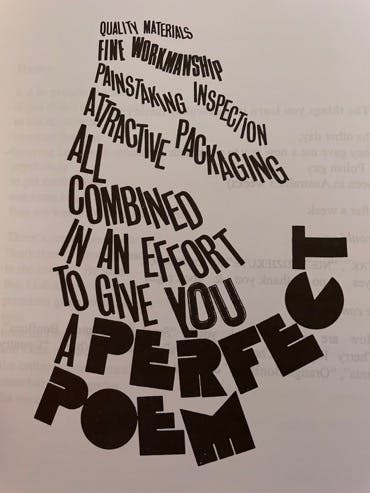 QUALITY MATERIALS
FINE WORKMANSHIP
PAINSTAKING INSPECTION
ATTRACTIVE PACKAGING
ALL
COMBINED
IN AN EFFORT
TO GIVE YOU
A PERFECT
POEM